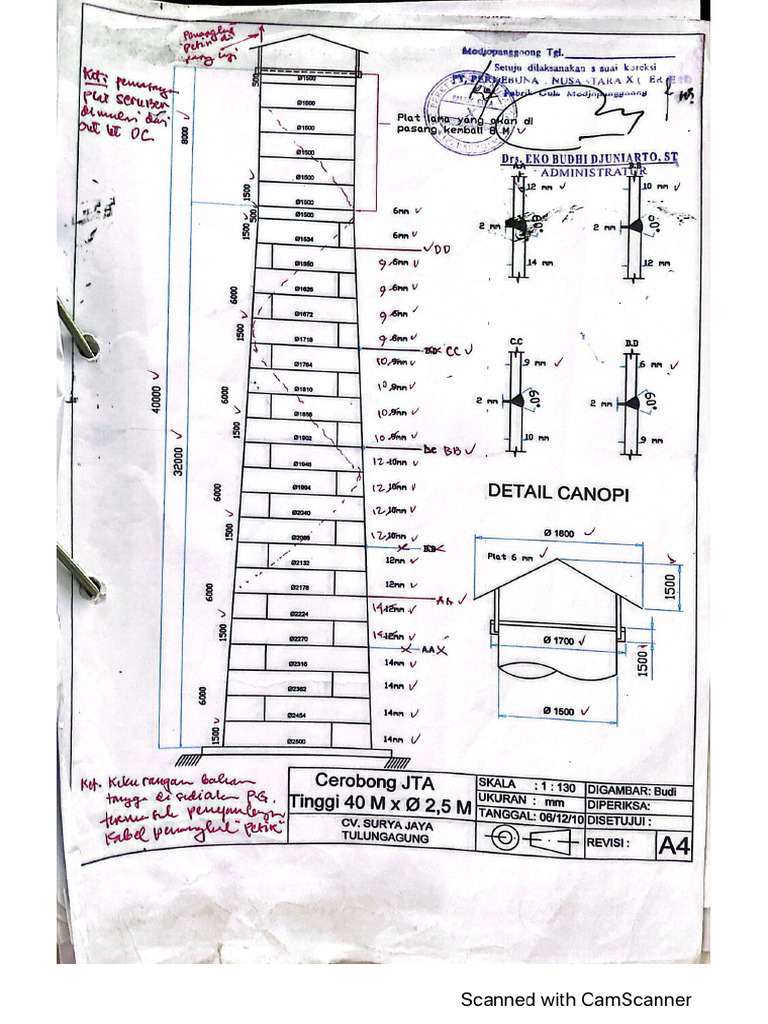 Penangkal
petir di
pasang lagi
Modjopanggoong Tgl.
Setuju dilaksanakan s suai koreksi
PT. PERKEBUNA NUSANTARA X (
Pabrik Gula Modjopanggoong
Drs. EKO BUDHI DJUNIARTO, ST
ADMINISTRATUR
Plat lama yang akan di
pasang kembali 8 M
Ket: pemasangan
plat scruber
dimulai dari
500
8000
1500
1500
500
40000
32000
6000
1500
6000
1500
6000
1500
6000
1500
6000
1500
6000
1500
Ø1500
Ø1500
Ø1500
Ø1500
Ø1500
Ø1500
Ø1500
Ø1534
Ø1580
Ø1626
Ø1672
Ø1718
Ø1764
Ø1810
Ø1856
Ø1902
Ø1948
Ø1994
Ø2040
Ø2086
Ø2132
Ø2178
Ø2224
Ø2270
Ø2316
Ø2362
Ø2454
Ø2500
6mm
6mm
DD
9 6mm
9 6mm
9 6mm
9 6mm
CC
10 9mm
10 9mm
10 9mm
10 9mm
BB
12 10mm
12 10mm
12 10mm
12 10mm
12mm
12mm
AA
14 12mm
14 12mm
A.A
14mm
14mm
14mm
14mm
A.A
12 mm
2 mm
60°
14 mm
B.B
10 mm
2 mm
60°
12 mm
C.C
9 mm
2 mm
60°
10 mm
D.D
6 mm
2 mm
60°
9 mm
DETAIL CANOPI
Ø 1800
Plat 6 mm
1500
Ø 1700
1500
Ø 1500
Ket. Kekurangan bahan
tangga di sediakan PG.
termasuk penyambungan
Kabel penangkal "Petir"
Cerobong JTA
Tinggi 40 M x Ø 2,5 M
CV. SURYA JAYA
TULUNGAGUNG
SKALA : 1 : 130
UKURAN : mm
TANGGAL: 06/12/10
DIGAMBAR: Budi
DIPERIKSA:
DISETUJUI :
REVISI :
A4
Scanned with CamScanner